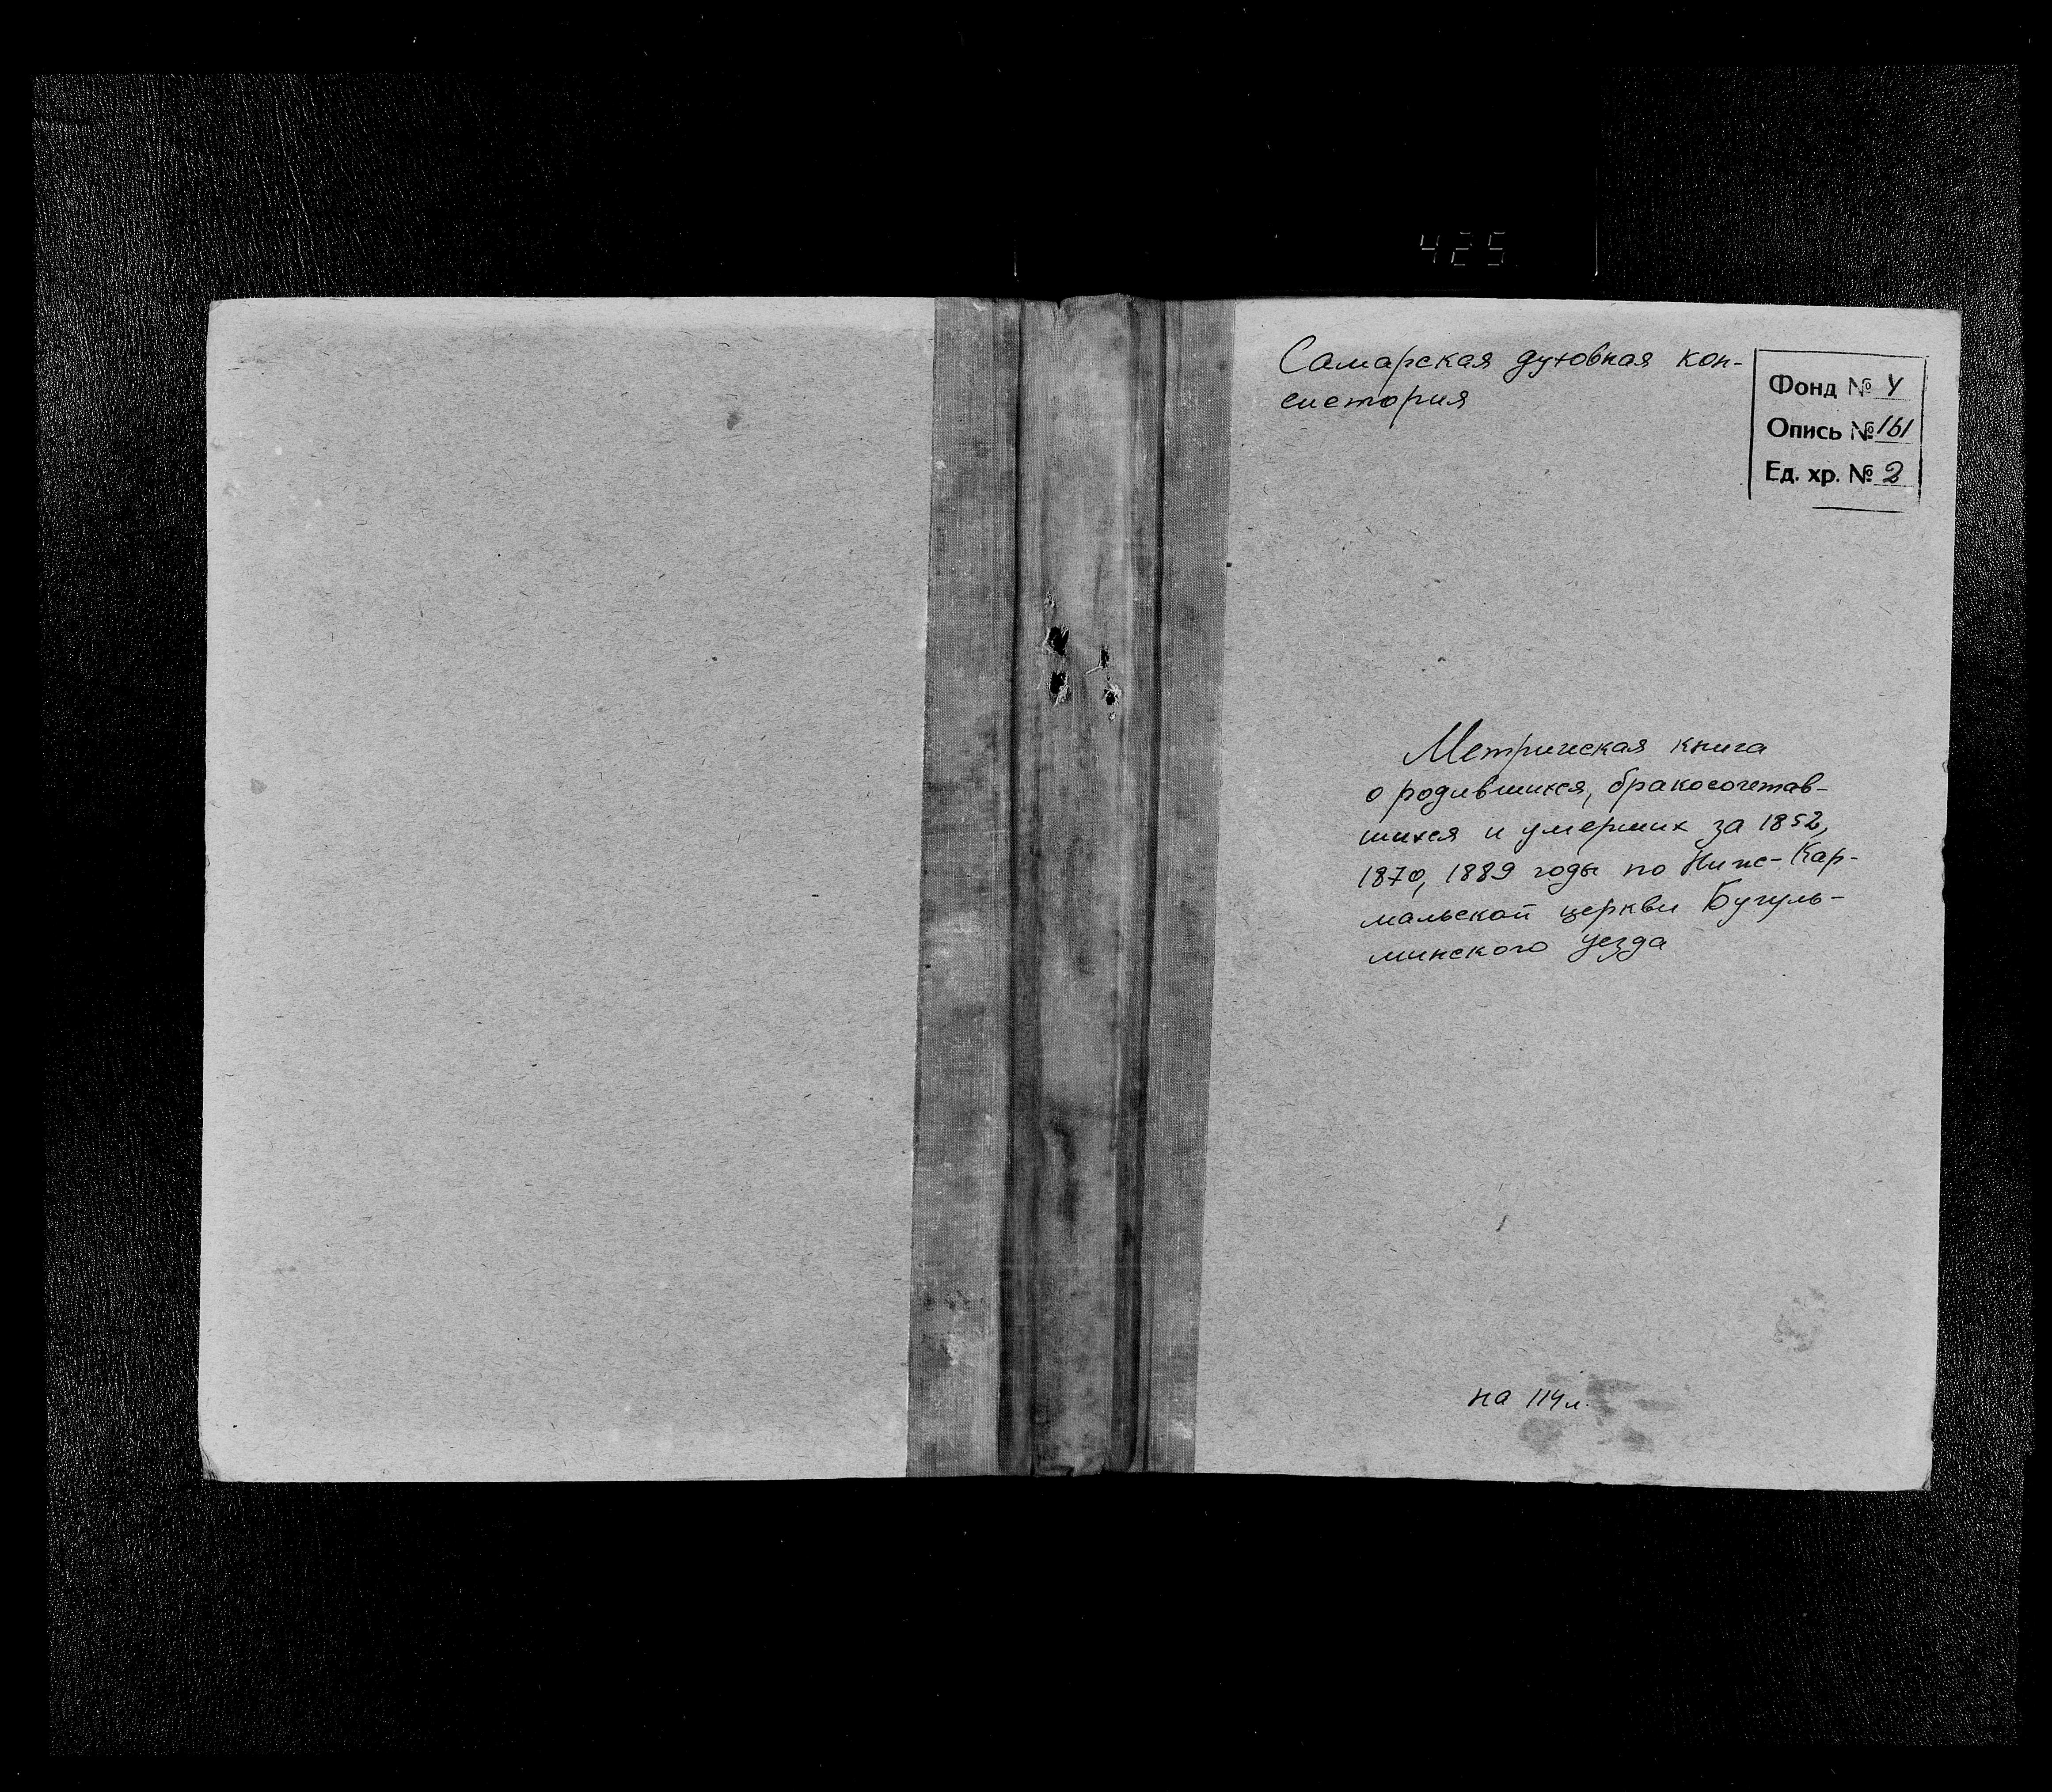 425
Самарская духовная кон-
систория
Фонд № 4
Опись № 161
Ед. хр. № 2
Метрическая книга
о родившихся, бракосочетав-
шихся и умерших за 1852,
1870, 1889 годы по Ниже-Кар-
мальской церкви Бугуль-
минского уезда
на 114 л.